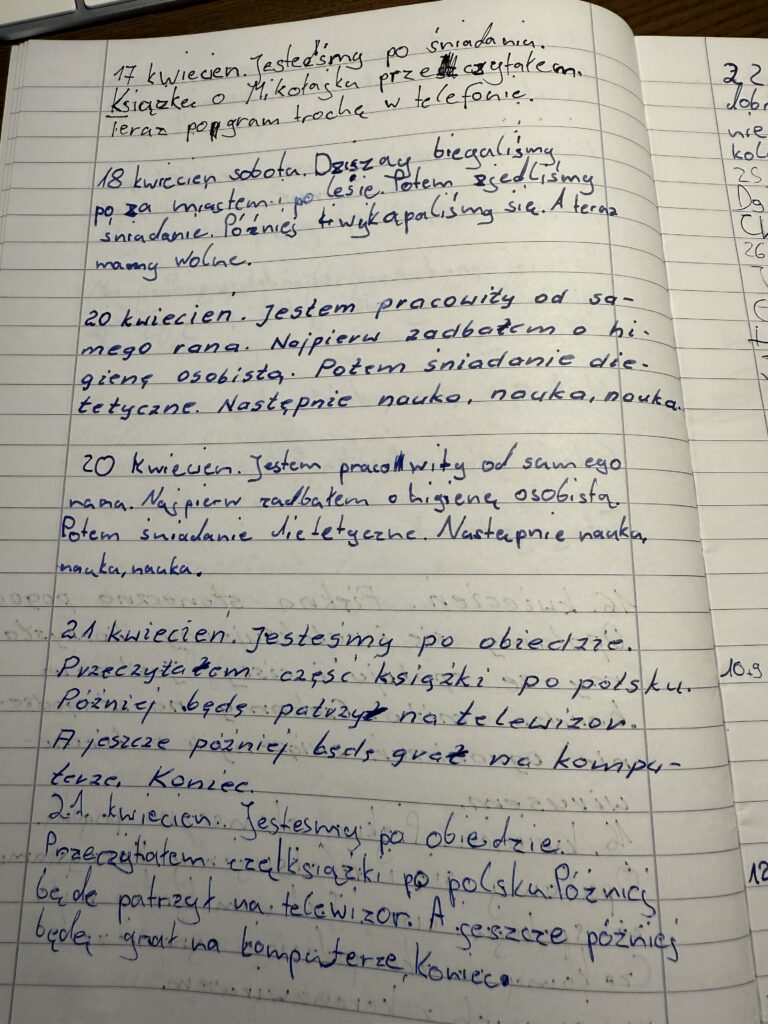 17 kwiecien. Jesteśmy po śniadaniu.
Książkę o Mikołajku przeczytałem.
Teraz pogram trochę w telefonie.
18 kwiecien sobota. Dziszay biegaliśmy
po za miastem i po leśie. Potem zjedliśmy
śniadanie. Później wykąpaliśmy się. A teraz
mamy wolne.
20 kwiecień. Jestem pracowity od sa-
mego rana. Najpierw zadbałem o hi-
gienę osobistą. Potem śniadanie die-
tetyczne. Następnie nauka, nauka, nauka.
20 kwiecien. Jestem pracowity od samego
rana. Najpierw zadbałem o higienę osobistą
Potem śniadanie dietetyczne. Nastąpnie nauka,
nauka, nauka.
21 kwiecień. Jesteśmy po obiedzie.
Przeczytałem część książki po polsku.
Później będę patrzył na telewizor.
A jeszcze później będę grał na kompu-
terze. Koniec.
21. kwiecien. Jestesmy po obiedzie.
Przeczytiałem częl książki po polsku. Później
będe patrzył na telewizor. A jeszcze później
będę grał na komputerze, Koniec.
22
dobr
nie
kol
25.
26
10.9
12